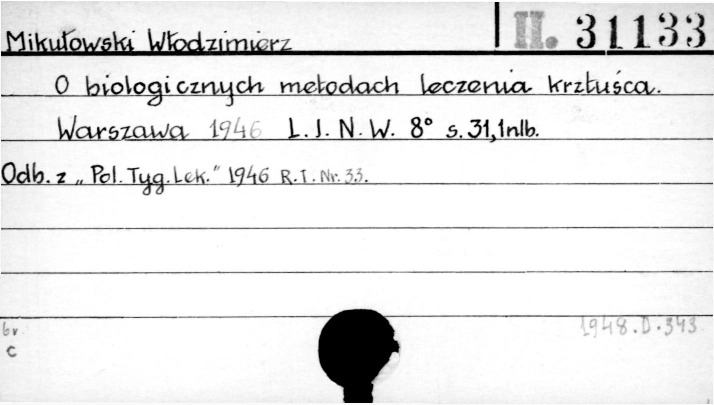 Mikułowski Włodzimierz
II. 31133
O biologicznych metodach leczenia krztuśca.
Warszawa 1946 L.I.N.W. 8° s. 31, 1nlb.
Odb. z „Pol. Tyg. Lek." 1946 R.I. Nr. 33.
br
c
1948.D.343